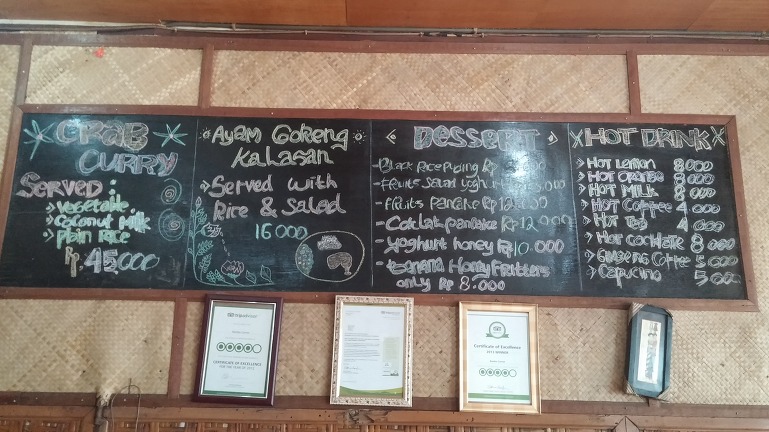 CRAB
CURRY
Served :
Vegetable
Coconut Milk
Plain Rice
Rp 45.000
Ayam Goreng
Kalasan
Served with
Rice & Salad
16.000
Dessert
- Black Rice Puding Rp
- Fruits Salad Yoghurt
- Fruits Pancake Rp 12.000
- Coklat Pancake Rp 12.000
- Yoghurt honey Rp 10.000
- Banana Honey Fritters
only Rp 8.000
HOT DRINK
Hot Lemon 8.000
Hot Orange 8.000
Hot Milk 8.000
Hot Coffee 4.000
Hot Tea 4.000
Hot Cocklate 8.000
Ginseng Coffee 5.000
Capucino 5.000
CERTIFICATE of EXCELLENCE
Certificate of Excellence
2013 WINNER